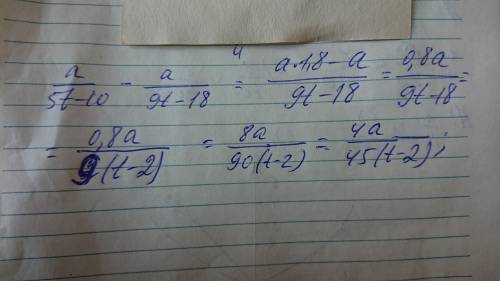 4
a/(5t-10) - a/(9t-18) = (a·1,8-a)/(9t-18) = 0,8a/(9t-18) =
= 0,8a/(9(t-2)) = 8a/(90(t-2)) = 4a/(45(t-2)),